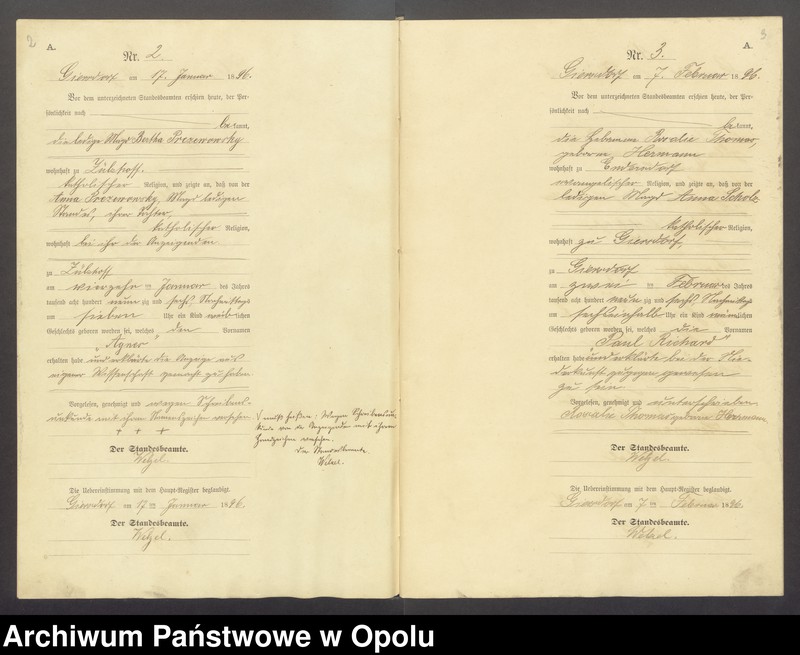 2
A.
Nr. 2.
Giersdorf am 17. Januar 1896.
Vor dem unterzeichneten Standesbeamten erschien heute, der Per-
sönlichkeit nach
bekannt,
die ledige Magd Bertha
wohnhaft zu Zülzhoff
katholischer Religion, und zeigte an, daß von der
Anna Magd ledigen
Standes, ihrer Tochter,
katholischer Religion,
wohnhaft bei ihr der Anzeigenden
zu Zülzhoff
am vierzehn ten Januar des Jahres
tausend acht hundert neunzig und sechs
um sieben Uhr ein Kind weiblichen
Geschlechts geboren worden sei, welches den Vornamen
"Agnes"
erhalten habe und erklärte die Anzeige aus
eigner Wissenschaft gemacht zu haben
Vorgelesen, genehmigt und wegen Schreibens
unkunde mit ihrem Handzeichen versehen
+ + +
Der Standesbeamte.
Wetzel.
Die Uebereinstimmung mit dem Haupt-Register beglaubigt.
Giersdorf am 17 ten Januar 1896.
Der Standesbeamte.
Wetzel.
heißen: Wegen Schreibensun
kunde von der Anzeigenden mit ihrem
Handzeichen versehen.
Der Standesbeamte.
Wetzel.
3
A.
Nr. 3.
Giersdorf am 7. Februar 1896.
Vor dem unterzeichneten Standesbeamten erschien heute, der Per-
sönlichkeit nach
bekannt,
die Hebamme Rosalie Thomas,
geborne Hermann
wohnhaft zu Endersdorf
evangelischer Religion, und zeigte an, daß von der
ledigen Magd Anna Scholz
katholischer Religion,
wohnhaft zu Giersdorf,
zu Giersdorf
am zwei ten Februar des Jahres
tausend acht hundert neunzig und sechs
um sechseinhalb Uhr ein Kind männlichen
Geschlechts geboren worden sei, welches die Vornamen
"Paul Richard"
erhalten habe und erklärte bei der Nie-
derkunft zugegen gewesen
zu sein
Vorgelesen, genehmigt und unterschrieben
Rosalie Thomas geborne Hermann
Der Standesbeamte.
Wetzel.
Die Uebereinstimmung mit dem Haupt-Register beglaubigt.
Giersdorf am 7 ten Februar 1896.
Der Standesbeamte.
Wetzel.
Archiwum Państwowe w Opolu